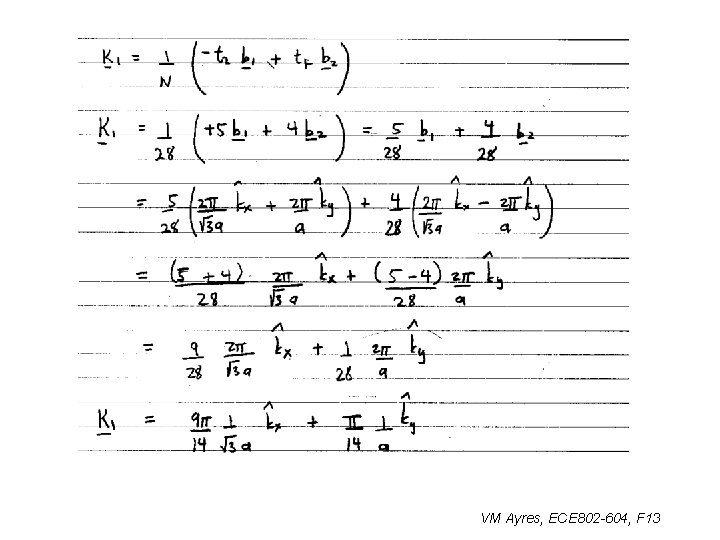 K₁ = 1/N (-t₂ b₁ + t₁ b₂)
K₁ = 1/28 (+5 b₁ + 4 b₂) = 5/28 b₁ + 4/28 b₂
= 5/28 (2π/√3a k̂x + 2π/a k̂y) + 4/28 (2π/√3a k̂x - 2π/a k̂y)
= (5+4)/28 · 2π/√3a k̂x + (5-4)/28 2π/a k̂y
= 9/28 2π/√3a k̂x + 1/28 2π/a k̂y
K₁ = 9π/14 1/√3a k̂x + π/14 1/a k̂y
VM Ayres, ECE802-604, F13